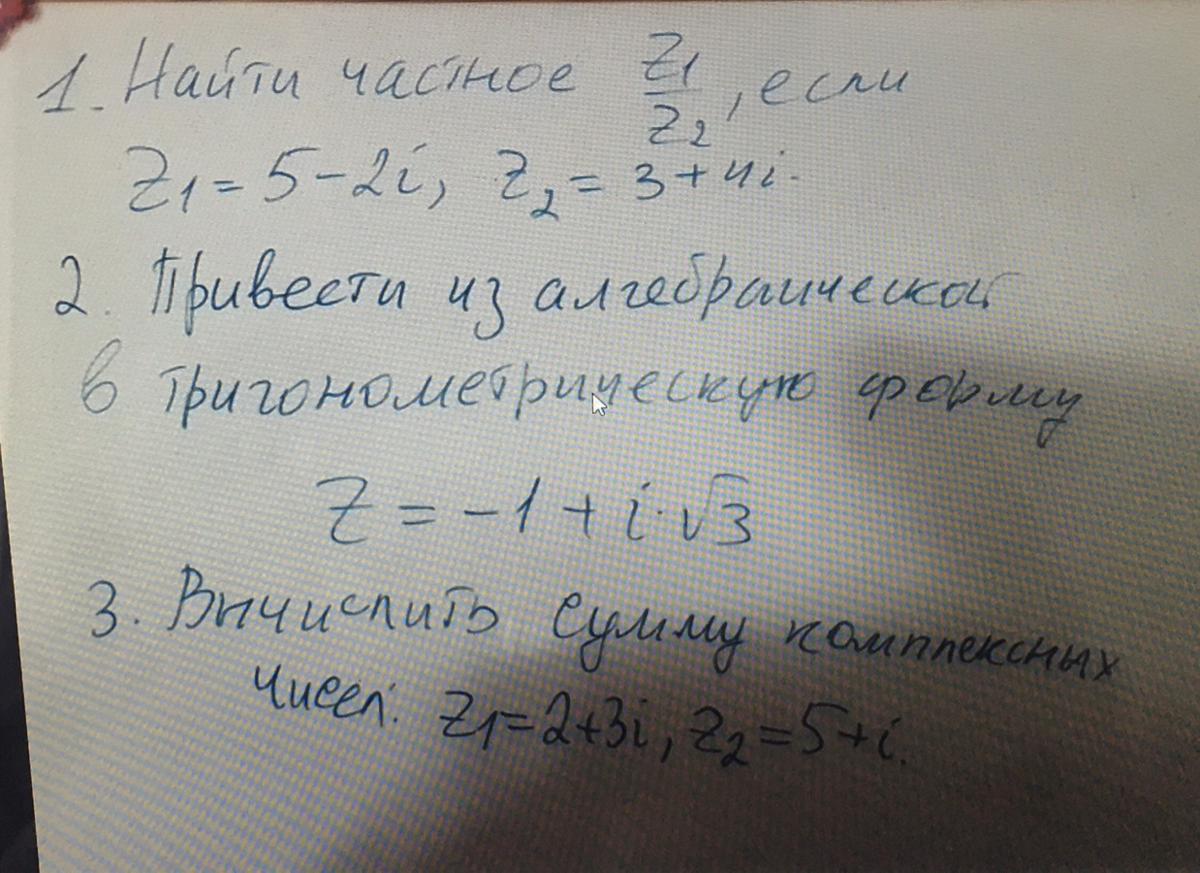 1. Найти частное z1/z2, если
z1 = 5 - 2i, z2 = 3 + 4i.
2. Привести из алгебраической
в тригонометрическую форму
z = -1 + i·√3
3. Вычислить сумму комплексных
чисел: z1 = 2+3i, z2 = 5+i.